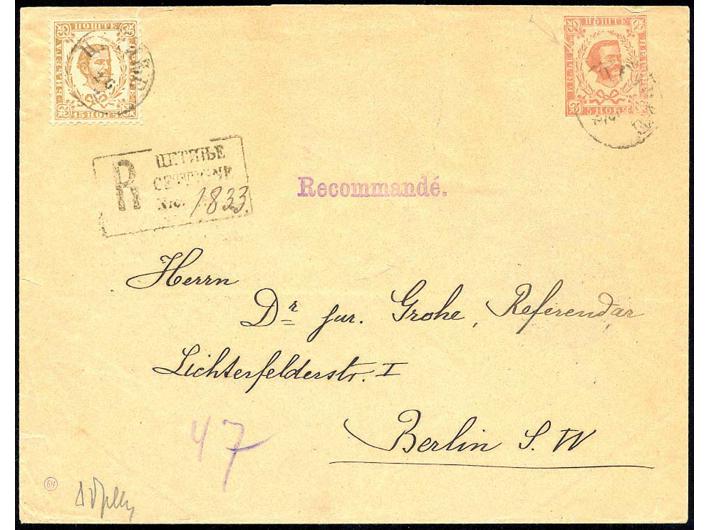 ПОШТЕ
15 НОВЧ
ПОШТЕ
R
ЦЕТИЊЕ
CETTIGNE
No. 1833
Recommandé.
Herrn
Dr jur. Grohe, Referendar
Lichterfelderstr. I
Berlin S. W
47